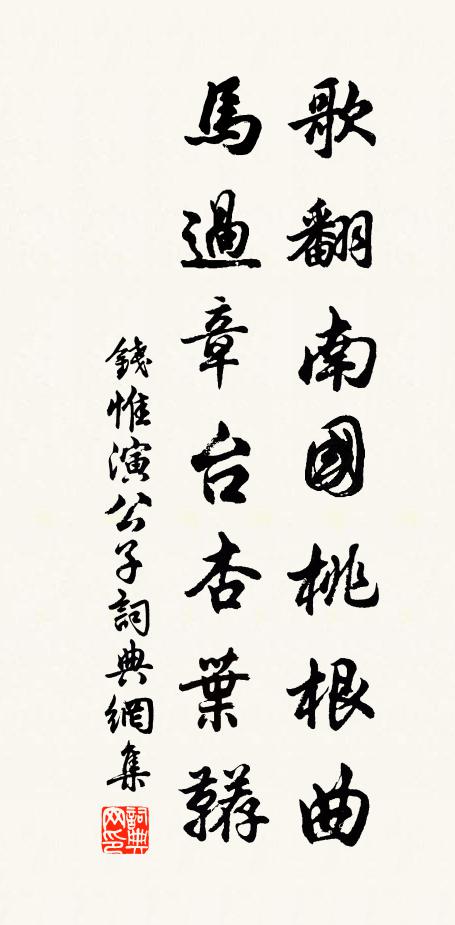 歌翻南國桃根曲
馬過章台杏葉韉
錢惟演公子詞典網集
詞典網印